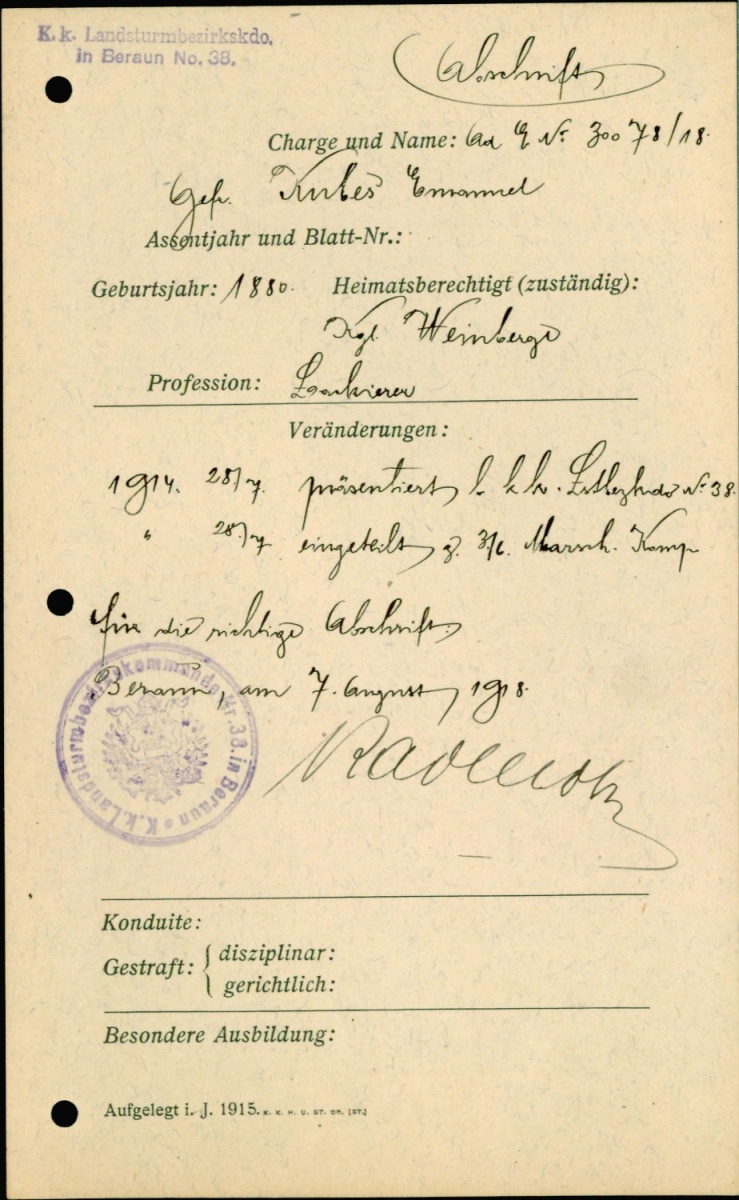 K. k. Landsturmbezirkskdo.
in Beraun No. 38.
Abschrift
Charge und Name: Ad E N: 30078/18.
Gefr. Kubeš Emanuel
Assentjahr und Blatt-Nr.:
Geburtsjahr: 1880. Heimatsberechtigt (zuständig):
Kgl. Weinberge
Profession: Lackierer
Veränderungen:
1914. 28/7. präsentiert b. k. k. Lstbezkdo N: 38.
" 28./7 eingeteilt z. Marsch. Komp
für die richtige Abschrift.
Beraun, am 7. August 1918.
K. k. Landsturmbezirkskommando Nr. 38. in Beraun
Konduite:
Gestraft: { disziplinar:
gerichtlich:
Besondere Ausbildung:
Aufgelegt i. J. 1915. K. K. H. U. ST. DR. (ST.)